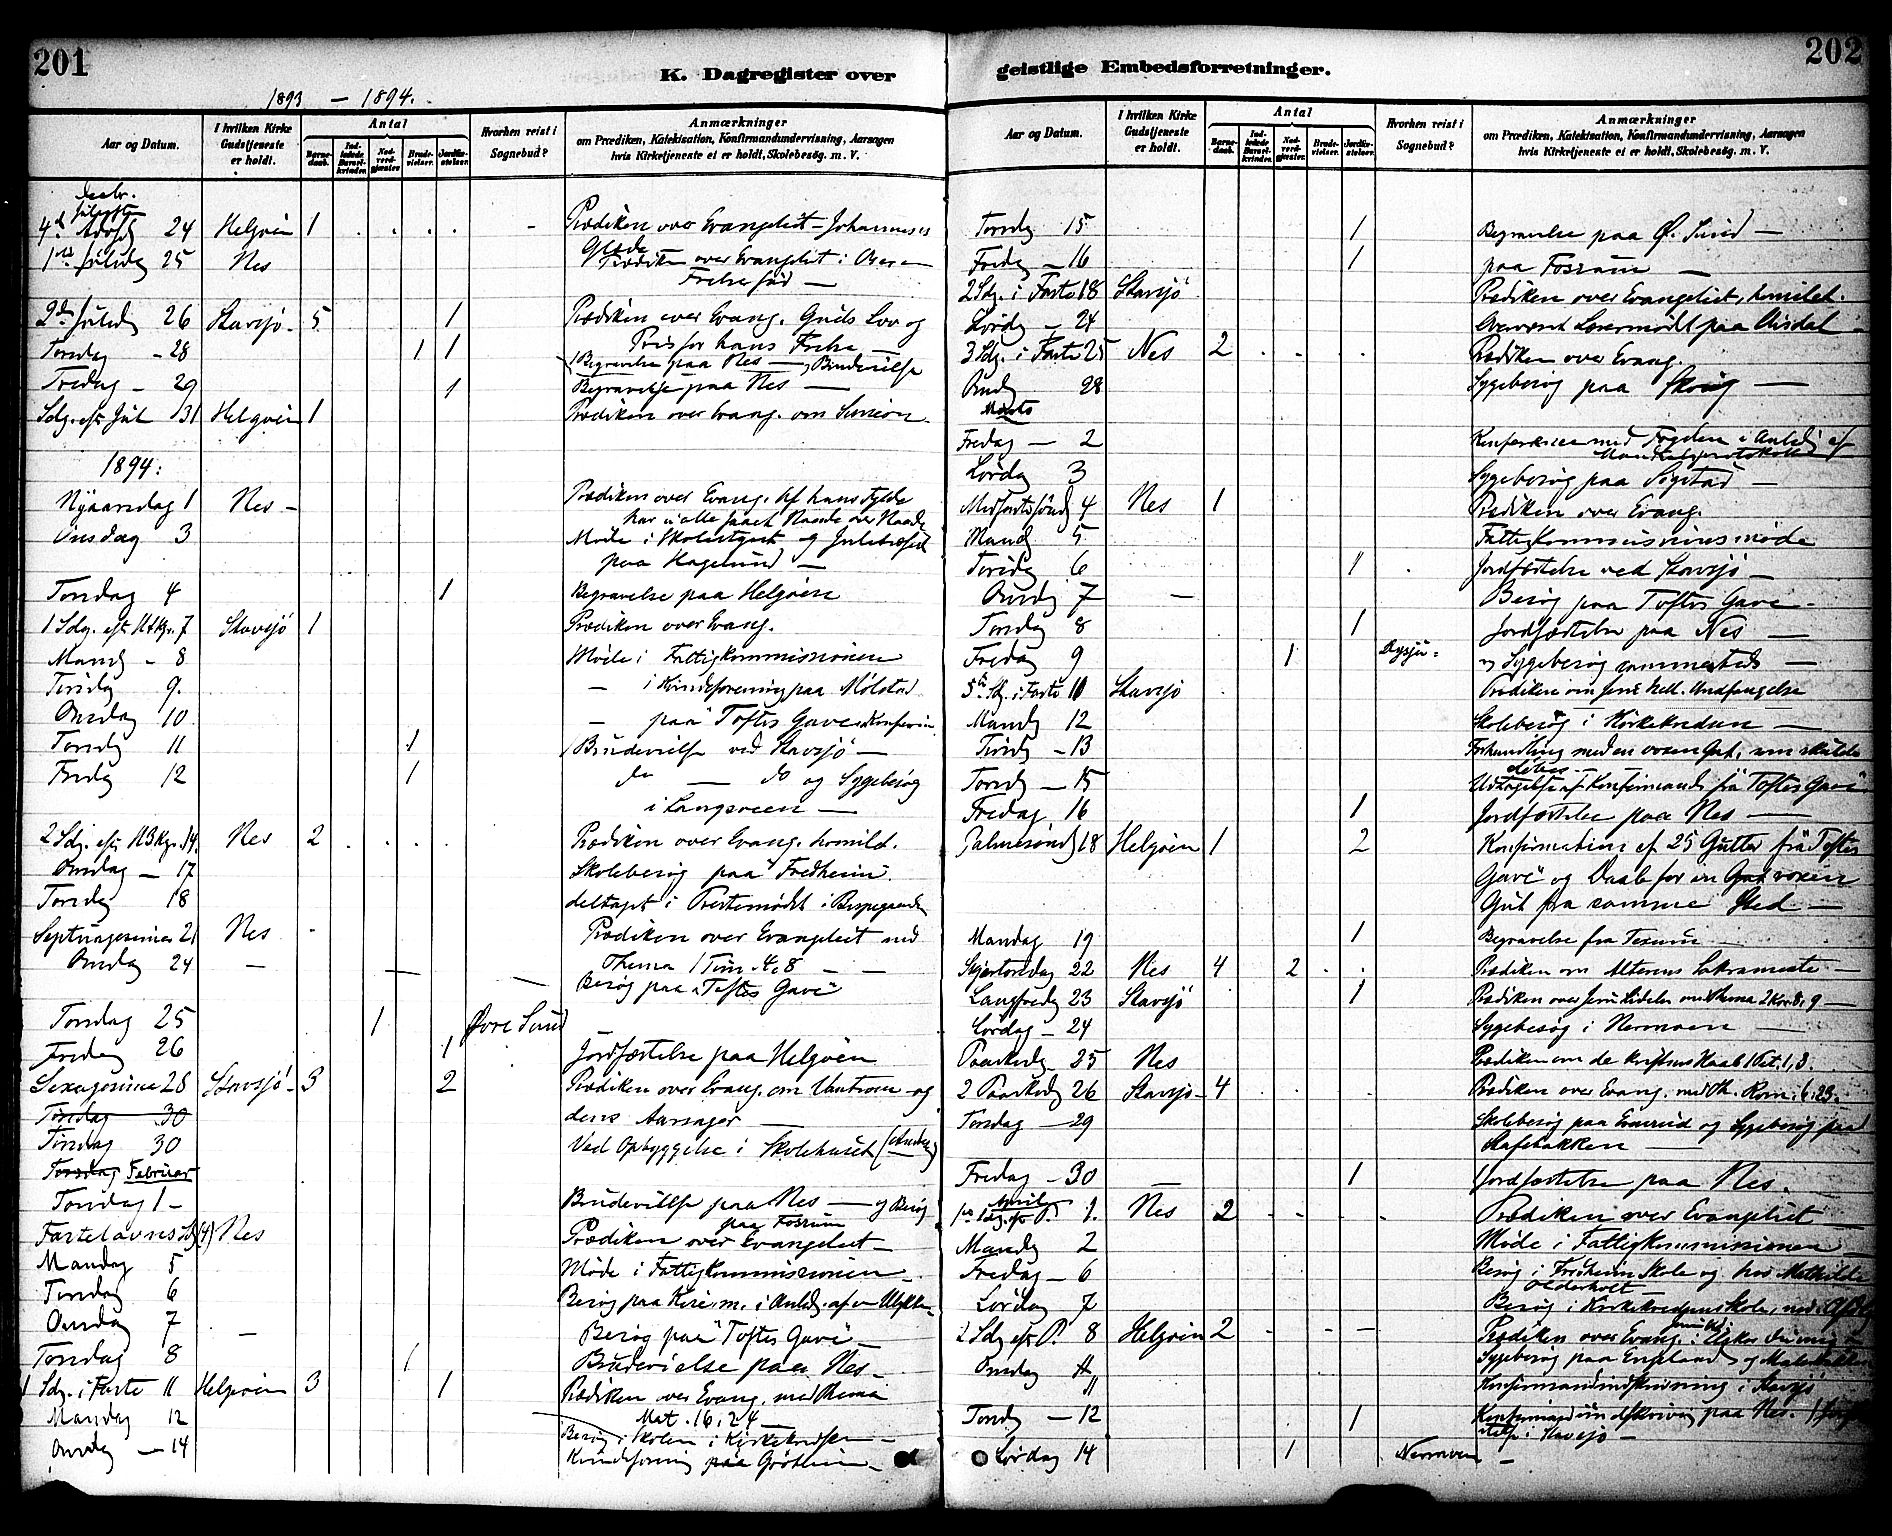 201
K. Dagregister over
1893 — 1894.
Aar og Datum.
I hvilken Kirke Gudstjeneste er holdt.
Antal
Barnedaab.
Indledede Barselkvinder.
Nadverdgjæster.
Brudevielser.
Jordfæstelser.
Hvorhen reist i Sognebud?
Anmærkninger
om Prædiken, Katekisation, Konfirmandundervisning, Aarsagen
hvis Kirketjeneste ei er holdt, Skolebesøg. m. V.
Decbr.
4de 24 Helgøen 1 . . . . - Prædiken over Evangeliet - Johannes's
Glæde
1ste Juledag 25 Nes Prædiken over Evangeliet: Om en
Frelser fød —
2den Juledag 26 Stavsjø - 5 1 Prædiken over Evang. Guds Lov og
Pris for hans Frelse
Torsdag - 28 1 1 Begravelse paa Nes — Brudevielse
Fredag - 29 1 Begravelse paa Nes —
Sdg. eft. Jul 31 Helgøen 1 Prædiken over Evang. om Simeon
1894:
Nyaarsdag 1 Nes - Prædiken over Evang. Af hans Fylde
har vi alle faaet Naade over Naade
Onsdag 3 Møde i Skolestyret og Juletræfest
paa Hagelund —
Torsdag 4 1 Begravelse paa Helgøen
1 Sdg. eft. H3Kgr. 7 Stavsjø 1 Prædiken over Evang.
Mand. - 8 Møde i Fattigkommissionen
Tirsdg 9. — i Kvindeforening paa Mølstad
Onsdag 10 — paa Toftes Gave
Torsdg 11 1 Brudevielse ved Stavsjø —
Fredg 12 1 do — do og Sygebesøg
i Langsveen —
2 Sdg. eft. H3Kgr. 14. Nes 2 . . . . Prædiken over Evang. homild.
Onsdag — 17 Skolebesøg paa Fredheim.
Torsdg 18 deltaget i Prestemødet i
Septuagesima 21 Nes - Prædiken over Evangeliet med
Thema 1 Tim. 4,8 — —
Onsdag 24 — Besøg paa "Toftes Gave"
Torsdag 25 1 Øvre Sund
Fredag 26 1 Jordfæstelse paa Helgøen
Sexagesima 28 Stavsjø - 3 2 Prædiken over Evang. om Vantroen og
dens Aarsager —
Tirsdag 30
Tirsdag 30 Ved Opbyggelse i Skolehuset
Torsdag Februar
Torsdag 1 - Brudevielse paa Nes — og Besøg
paa Fossum
Fastelavns Sdg (4) Nes Prædiken over Evangeliet —
Mandag 5 Møde i Fattigkommissionen -
Tirsdag 6 Besøg paa i Anledn. af en Ulykke -
Onsdag 7 — Besøg paa "Toftes Gave" -
Torsdag 8 1 Brudevielse paa Nes -
1 Sdg. i Faste 11 Helgøen 3 1 Prædiken over Evang. med Thema
Mat. 16,24 —
Mandag 12 Besøg i Skolen i Kirkekredsen -
Onsdag — 14 Kvindeforening paa Grøtheim -
202
geistlige Embedsforretninger.
Aar og Datum.
I hvilken Kirke Gudstjeneste er holdt.
Antal
Barnedaab.
Indledede Barselkvinder.
Nadverdgjæster.
Brudevielser.
Jordfæstelser.
Hvorhen reist i Sognebud?
Anmærkninger
om Prædiken, Katekisation, Konfirmandundervisning, Aarsagen
hvis Kirketjeneste ei er holdt, Skolebesøg. m. V.
Torsdg 15 1 Begravelse paa Ø. Sund —
Fredg — 16 1 paa Fossum —
2 Sdg. i Faste 18 Stavsjø Prædiken over Evangeliet, homilet.
Lørdg — 24 Overværet Læsermødet paa —
3 Sdg. i Faste 25 Nes 2 . . . . Prædiken over Evang.
Onsdg 28 Sygebesøg paa Skoug —
Marts
Fredag — 2 Konference med Fogden i Anledn. af
Lørdag 3 Sygebesøg paa Sigstad —
Midfastesøndg 4 Nes 1 Prædiken over Evang.
Mandg 5 Fattigkommissionsmøde
Tirsdg 6 1 . Jordfæstelse ved Stavsjø —
Onsdg 7 — Besøg paa Toftes Gave -
Torsdag 8 1 Jordfæstelse paa Nes —
Fredag 9 1 og Sygebesøg sammesteds —
5te Sdg. i Faste 11 Stavsjø Prædiken om Jesu Undfangelse
Mandg 12 Skolebesøg i Kirkekredsen —
Tirsdg — 13 Forhandling med en voxen Gut, som skulde
døbes —
Torsdg — 15 Udspørgelse af Konfirmander fra "Toftes Gave"
Fredag 16 1 Jordfæstelse paa Nes —
Palmesøndg 18 Helgøen 1 2 Konfirmation af 25 Gutter fra "Toftes
Gave" og Daab for en voxen
Gut fra samme Sted —
Mandag 19 1 Begravelse fra —
Skjærtorsdag 22 Nes 4 2 . . Prædiken om Alterens Sakramente -
Langfredg 23 Stavsjø 1 Prædiken over Jesu Lidelse med Thema 2 Kor. 8,9 —
Lørdag - 24 Sygebesøg i Nermoen —
Paaskedg 25 Nes Prædiken om de Kristnes Haab 1 Pet. 1,3.
2 Paaskedg 26 Stavsjø - 4 Prædiken over Evang. med Th. Rom. 6,23.
Torsdag — 29 Skolebesøg paa og Sygebesøg paa
Stafsbakken —
Fredag - 30 — 1 Jordfæstelse paa Nes.
April
1ste Sdg. eft. P. 1. Nes 2 - - - Prædiken over Evangeliet —
Mandg 2 Møde i Fattigkommissionen —
Fredag - 6 Besøg i Fredheim Skole og hos Mathilde
Lørdag 7 Besøg i Kirkekredsens Skole,
2 Sdg. eft. P. 8 Helgøen 2 - - - Prædiken over Evang.:
Onsdag 11 Sygebesøg paa Engeland og
" Konfirmandindskrivning i Stavsjø
Torsdg — 12 1 Konfirmandindskrivning paa Nes.
i Stavsjø —
Lørdag 14 1 Nermoen —